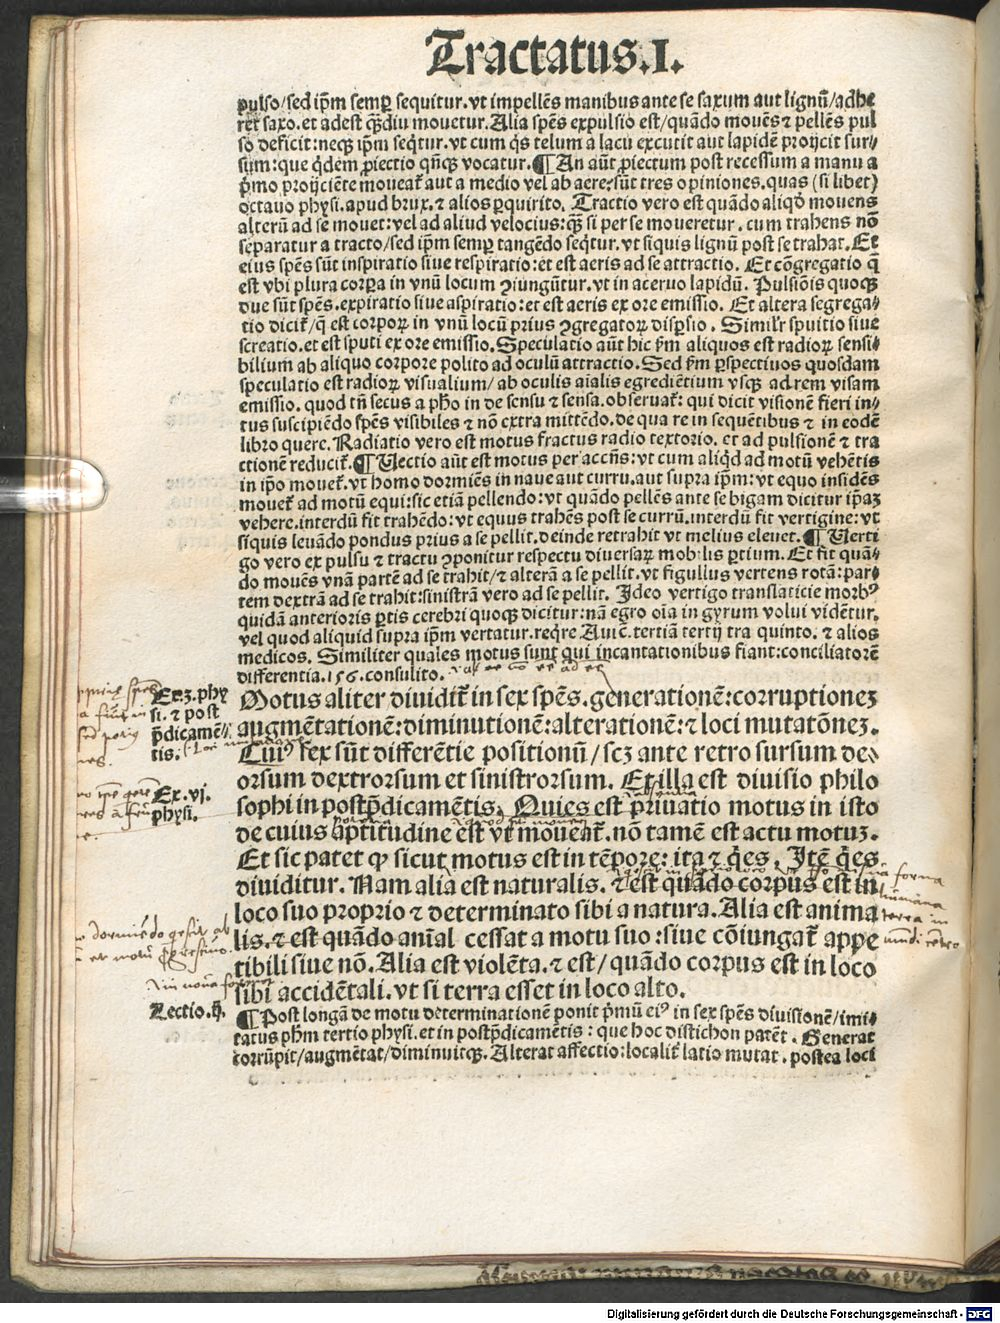 Tractatus.I.
pulso/sed ip̄m semꝑ sequitur.vt impellēs manibus ante se saxum aut lignū/adhe
ret saxo.et adest qᷓdiu mouetur.Alia spēs expulsio est/quādo mouēs ⁊ pellēs pul
so deficit:necꝫ ip̄m seq̄tur.vt cum qͥs telum a lacu excutit aut lapidē proijcit sur⸗
sum:que qͥdem ꝓiectio qn̄qꝫ vocatur.¶An aūt ꝓiectum post recessum a manu a
pͥmo proijciēte moueat̃ aut a medio vel ab aere:sūt tres opiniones.quas (si libet)
octauo physi.apud brux.⁊ alios ꝑquirito. Tractio vero est quādo aliqͦd mouens
alterū ad se mouet:vel ad aliud velocius:qᷓꝫ si per se moueretur.cum trahens nō
separatur a tracto/sed ip̄m semꝑ tangēdo seq̄tur.vt siquis lignū post se trahat.Et
eius spēs sūt inspiratio siue respiratio:et est aeris ad se attractio. Et cōgregatio q̄
est vbi plura corꝑa in vnū locum ꝯiungūtur.vt in aceruo lapidū. Pulsiōis quoqꝫ
due sūt spēs.expiratio siue aspiratio:et est aeris ex ore emissio. Et altera segrega⸗
tio dicit̃/q̄ est corpoꝝ in vnū locū prius ꝯgregatoꝝ disꝑsio. Simil̓r spuitio siue
screatio.et est sputi ex ore emissio.Speculatio aūt hic ẜm aliquos est radioꝝ sensi⸗
bilium ab aliquo corpore polito ad oculū attractio.Sed ẜm ꝑspectiuos quosdam
speculatio est radioꝝ visualium/ab oculis aīalis egrediētium vsqꝫ ad rem visam
emissio.quod tn̄ secus a pho in de sensu ⁊ sensa.obseruat̃:qui dicit visionē fieri in⸗
tus suscipiēdo spēs visibiles ⁊ nō extra mittēdo.de qua re in sequētibus ⁊ in eodē
libro quere. Radiatio vero est motus fractus radio textorio.et ad pulsionē ⁊ tra
ctionē reducit̃.¶Vectio aūt est motus per accn̄s:vt cum aliqͥd ad motū vehētis
in ip̄o mouet̃.vt homo dormiēs in naue aut curru.aut supra ip̄m:vt equo insidēs
mouet̃ ad motū equi:sic etiā pellendo:vt quādo pellēs ante se bigam dicitur ip̄aꝫ
vehere.interdū fit trahēdo:vt equus trahēs post se currū.interdū fit vertigine:vt
siquis leuādo pondus prius a se pellit.deinde retrahit vt melius eleuet.¶Verti
go vero ex pulsu ⁊ tractu ꝯponitur respectu diuersaꝝ mobilis ꝑtium.Et fit quā⸗
do mouēs vnā partē ad se trahit/⁊ alterā a se pellit.vt figullus vertens rotā:par⸗
tem dextrā ad se trahit:sinistrā vero ad se pellit. Ideo vertigo translaticie morbꝰ
quidā anterioris ꝑtis cerebri quoqꝫ dicitur:nā egro oīa in gyrum volui vidētur.
vel quod aliquid supra ip̄m vertatur.reqͥre Auic̄.tertiā tertij tra quinto.⁊ alios
medicos. Similiter quales motus sunt qui incantationibus fiant:conciliatorē
differentia.156.consulito.
Ex.3.phy
si.⁊ post
p̄dicamē⸗
tis.
Motus aliter diuidit̃ in sex spēs.generationē:corruptioneꝫ
augmētationē:diminutionē:alterationē:⁊ loci mutatōneꝫ.
Cuiꝰ sex sūt differētie positionū/scꝫ ante retro sursum de⸗
orsum dextrorsum et sinistrorsum. Et illa est diuisio philo
Ex.vj.
physi.
sophi in postp̄dicamētis. Quies est priuatio motus in isto
de cuius aptitudine est vt moueat̃.nō tamē est actu motuꝫ.
Et sic patet ꝙ sicut motus est in tēpore:ita ⁊ qͥes. Itē qͥes
diuiditur.Nam alia est naturalis.⁊ est quādo corpus est in
loco suo proprio ⁊ determinato sibi a natura.Alia est anima
lis.⁊ est quādo anīal cessat a motu suo:siue cōiungat̃ appe
tibili siue nō.Alia est violēta.⁊ est/quādo corpus est in loco
sibi accidētali.vt si terra esset in loco alto.
Lectio.ij.
¶Post longā de motu determinationē ponit pͥmū eiꝰ in sex spēs diuisionē/imi⸗
tatus phm tertio physi.et in postp̄dicamētis:que hoc distichon patēt.Generat
corrūpit/augmētat/diminuitqꝫ.Alterat affectio:localit̃ latio mutat.postea loci
Digitalisierung gefördert durch die Deutsche Forschungsgemeinschaft - DFG